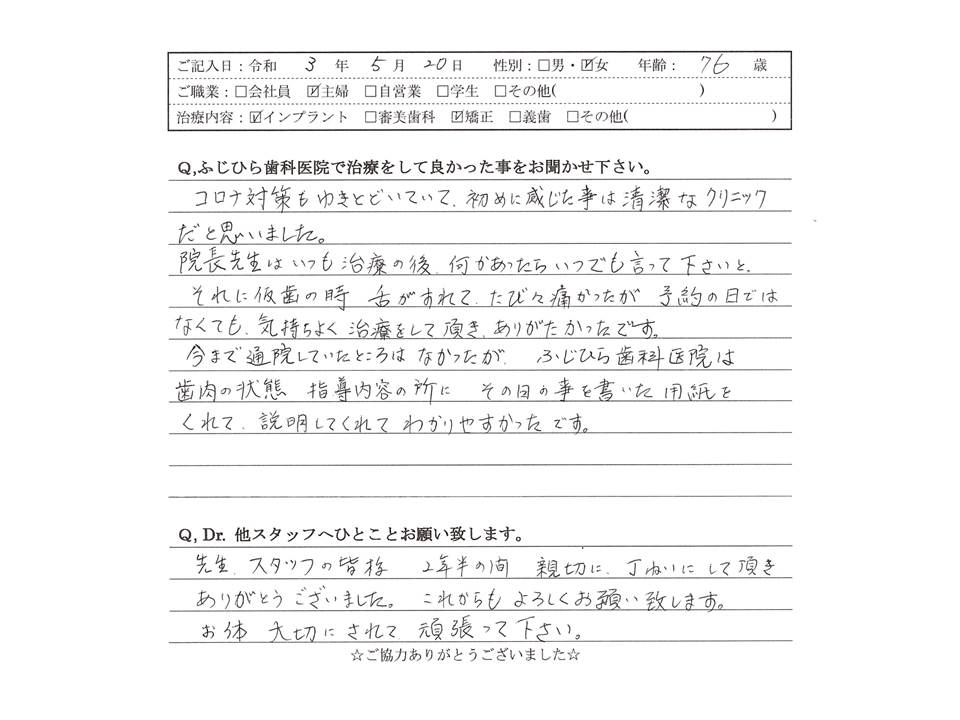 ご記入日：令和 3 年 5 月 20 日 性別：□男・☑女 年齢： 76 歳
ご職業：□会社員 ☑主婦 □自営業 □学生 □その他( )
治療内容：☑インプラント □審美歯科 ☑矯正 □義歯 □その他( )
Q,ふじひら歯科医院で治療をして良かった事をお聞かせ下さい。
コロナ対策もゆきとどいていて、初めに感じた事は清潔なクリニック
だと思いました。
院長先生はいつも治療の後、何かあったらいつでも言って下さいと、
それに仮歯の時 舌がすれて、たび々痛かったが 予約の日では
なくても、気持ちよく治療をして頂き、ありがたかったです。
今まで通院していたところはなかったが、ふじひら歯科医院は
歯肉の状態 指導内容の所に その日の事を書いた用紙を
くれて、説明してくれてわかりやすかったです。
Q, Dr. 他スタッフへひとことお願い致します。
先生、スタッフの皆様 2年半の間 親切に、丁ねいにして頂き
ありがとうございました。これからもよろしくお願い致します。
お体 大切にされて、頑張って下さい。
☆ご協力ありがとうございました☆